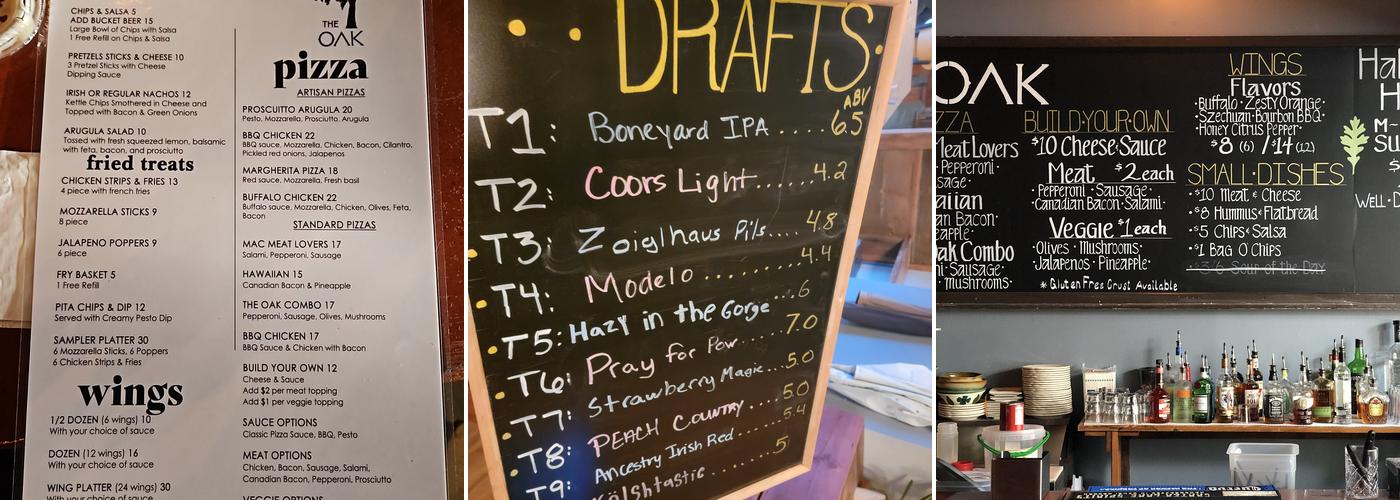 CHIPS & SALSA 5
ADD BUCKET BEER 15
Large Bowl of Chips with Salsa
1 Free Refill on Chips & Salsa
PRETZELS STICKS & CHEESE 10
3 Pretzel Sticks with Cheese
Dipping Sauce
IRISH OR REGULAR NACHOS 12
Kettle Chips Smothered in Cheese and
Topped with Bacon & Green Onions
ARUGULA SALAD 10
Tossed with fresh squeezed lemon, balsamic
with feta, bacon, and prosciutto
fried treats
CHICKEN STRIPS & FRIES 13
4 piece with french fries
MOZZARELLA STICKS 9
8 piece
JALAPENO POPPERS 9
6 piece
FRY BASKET 5
1 Free Refill
PITA CHIPS & DIP 12
Served with Creamy Pesto Dip
SAMPLER PLATTER 30
6 Mozzarella Sticks, 6 Poppers
6 Chicken Strips & Fries
wings
1/2 DOZEN (6 wings) 10
With your choice of sauce
DOZEN (12 wings) 16
With your choice of sauce
WING PLATTER (24 wings) 30
With your choice of sauce
THE
OAK
pizza
ARTISAN PIZZAS
PROSCUITTO ARUGULA 20
Pesto, Mozzarella, Prosciutto, Arugula
BBQ CHICKEN 22
BBQ sauce, Mozzarella, Chicken, Bacon, Cilantro,
Pickled red onions, Jalapenos
MARGHERITA PIZZA 18
Red sauce, Mozzarella, Fresh basil
BUFFALO CHICKEN 22
Buffalo sauce, Mozzarella, Chicken, Olives, Feta,
Bacon
STANDARD PIZZAS
MAC MEAT LOVERS 17
Salami, Pepperoni, Sausage
HAWAIIAN 15
Canadian Bacon & Pineapple
THE OAK COMBO 17
Pepperoni, Sausage, Olives, Mushrooms
BBQ CHICKEN 17
BBQ Sauce & Chicken with Bacon
BUILD YOUR OWN 12
Cheese & Sauce
Add $2 per meat topping
Add $1 per veggie topping
SAUCE OPTIONS
Classic Pizza Sauce, BBQ, Pesto
MEAT OPTIONS
Chicken, Bacon, Sausage, Salami,
Canadian Bacon, Pepperoni, Prosciutto
VEGGIE OPTIONS
DRAFTS
ABV
T1: Boneyard IPA .... 6.5
T2: Coors Light ...... 4.2
T3: Zoiglhaus Pils.... 4.8
T4: Modelo ......... 4.4
T5: Hazy in the Gorge ... 6
T6: Pray for Pow.... 7.0
T7: Strawberry Magic... 5.0
T8: PEACH COUNTRY .... 5.0
T9: Ancestry Irish Red ....... 5.4
Kölshtastic ........ 5
OAK
ZZA
Meat Lovers
Pepperoni·
sage·
aiian
an Bacon·
eapple·
ak Combo
ni·Sausage·
Mushrooms·
BUILD·YOUR·OWN
$10 Cheese·Sauce
Meat $2 each
·Pepperoni·Sausage·
·Canadian Bacon·Salami·
Veggie $1 each
·Olives·Mushrooms·
·Jalapenos·Pineapple·
* Gluten Free Crust Available
WINGS
Flavors
·Buffalo·Zesty Orange·
·Szechuan·Bourbon BBQ·
·Honey Citrus Pepper·
$8 (6) / $14 (12)
SMALL·DISHES
·$10 Meat & Cheese
·$8 Hummus & Flatbread
·$5 Chips & Salsa
·$1 Bag O Chips
·$3/6 Soup of the Day
Ha
H
M-
SU
$
WELL·D